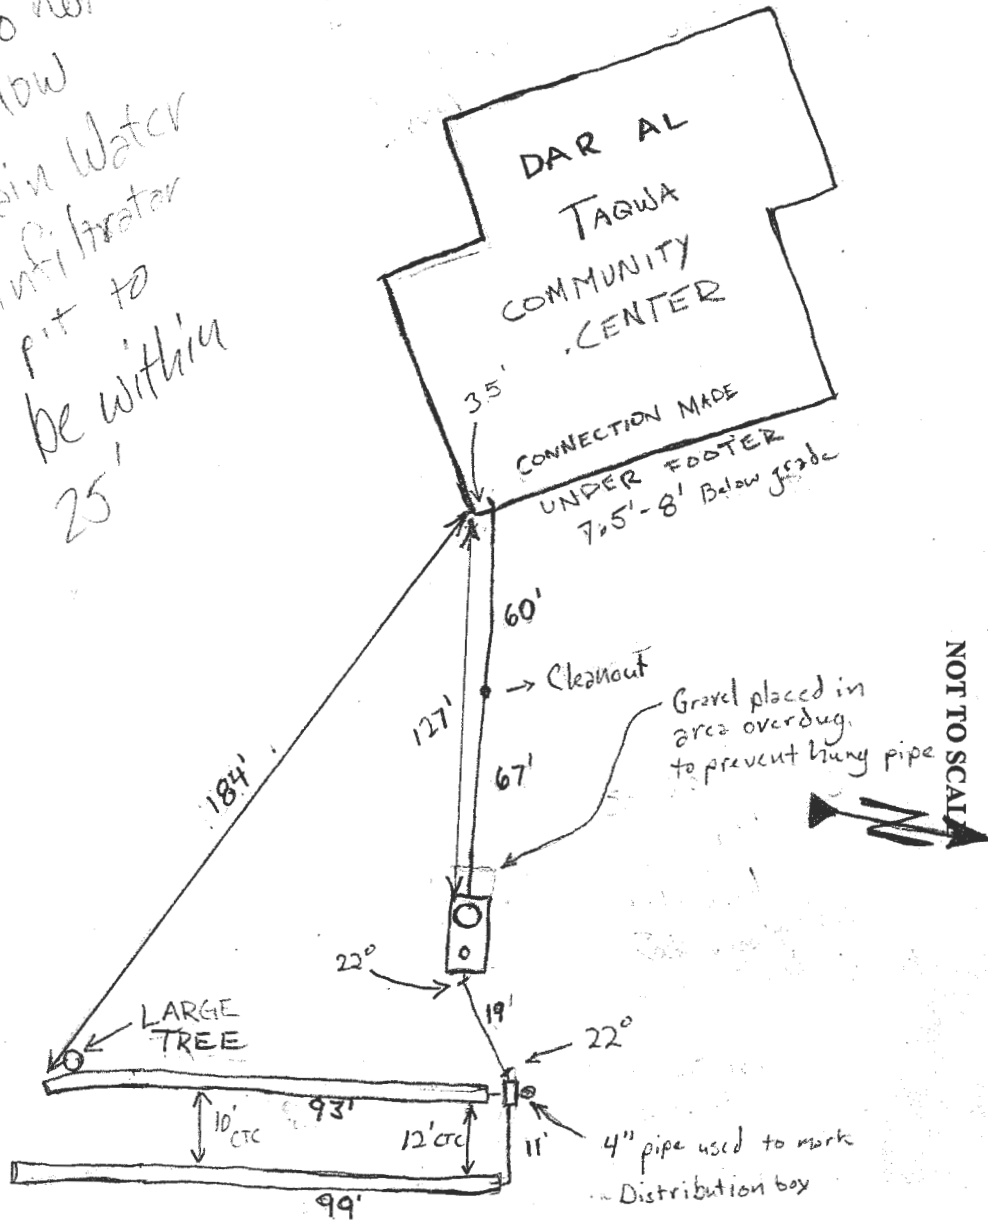 Water
infiltrator
pit to
be within
25'
DAR AL
TAQWA
COMMUNITY
CENTER
3.5'
CONNECTION MADE
UNDER FOOTER
7.5'-8' Below grade
60'
→ Cleanout
127'
67'
184'
Gravel placed in
area overdug.
to prevent hung pipe
NOT TO SCAL
N
22°
19'
22°
LARGE
TREE
93'
10'
CTC
12' CTC
11'
4" pipe used to mark
Distribution box
99'